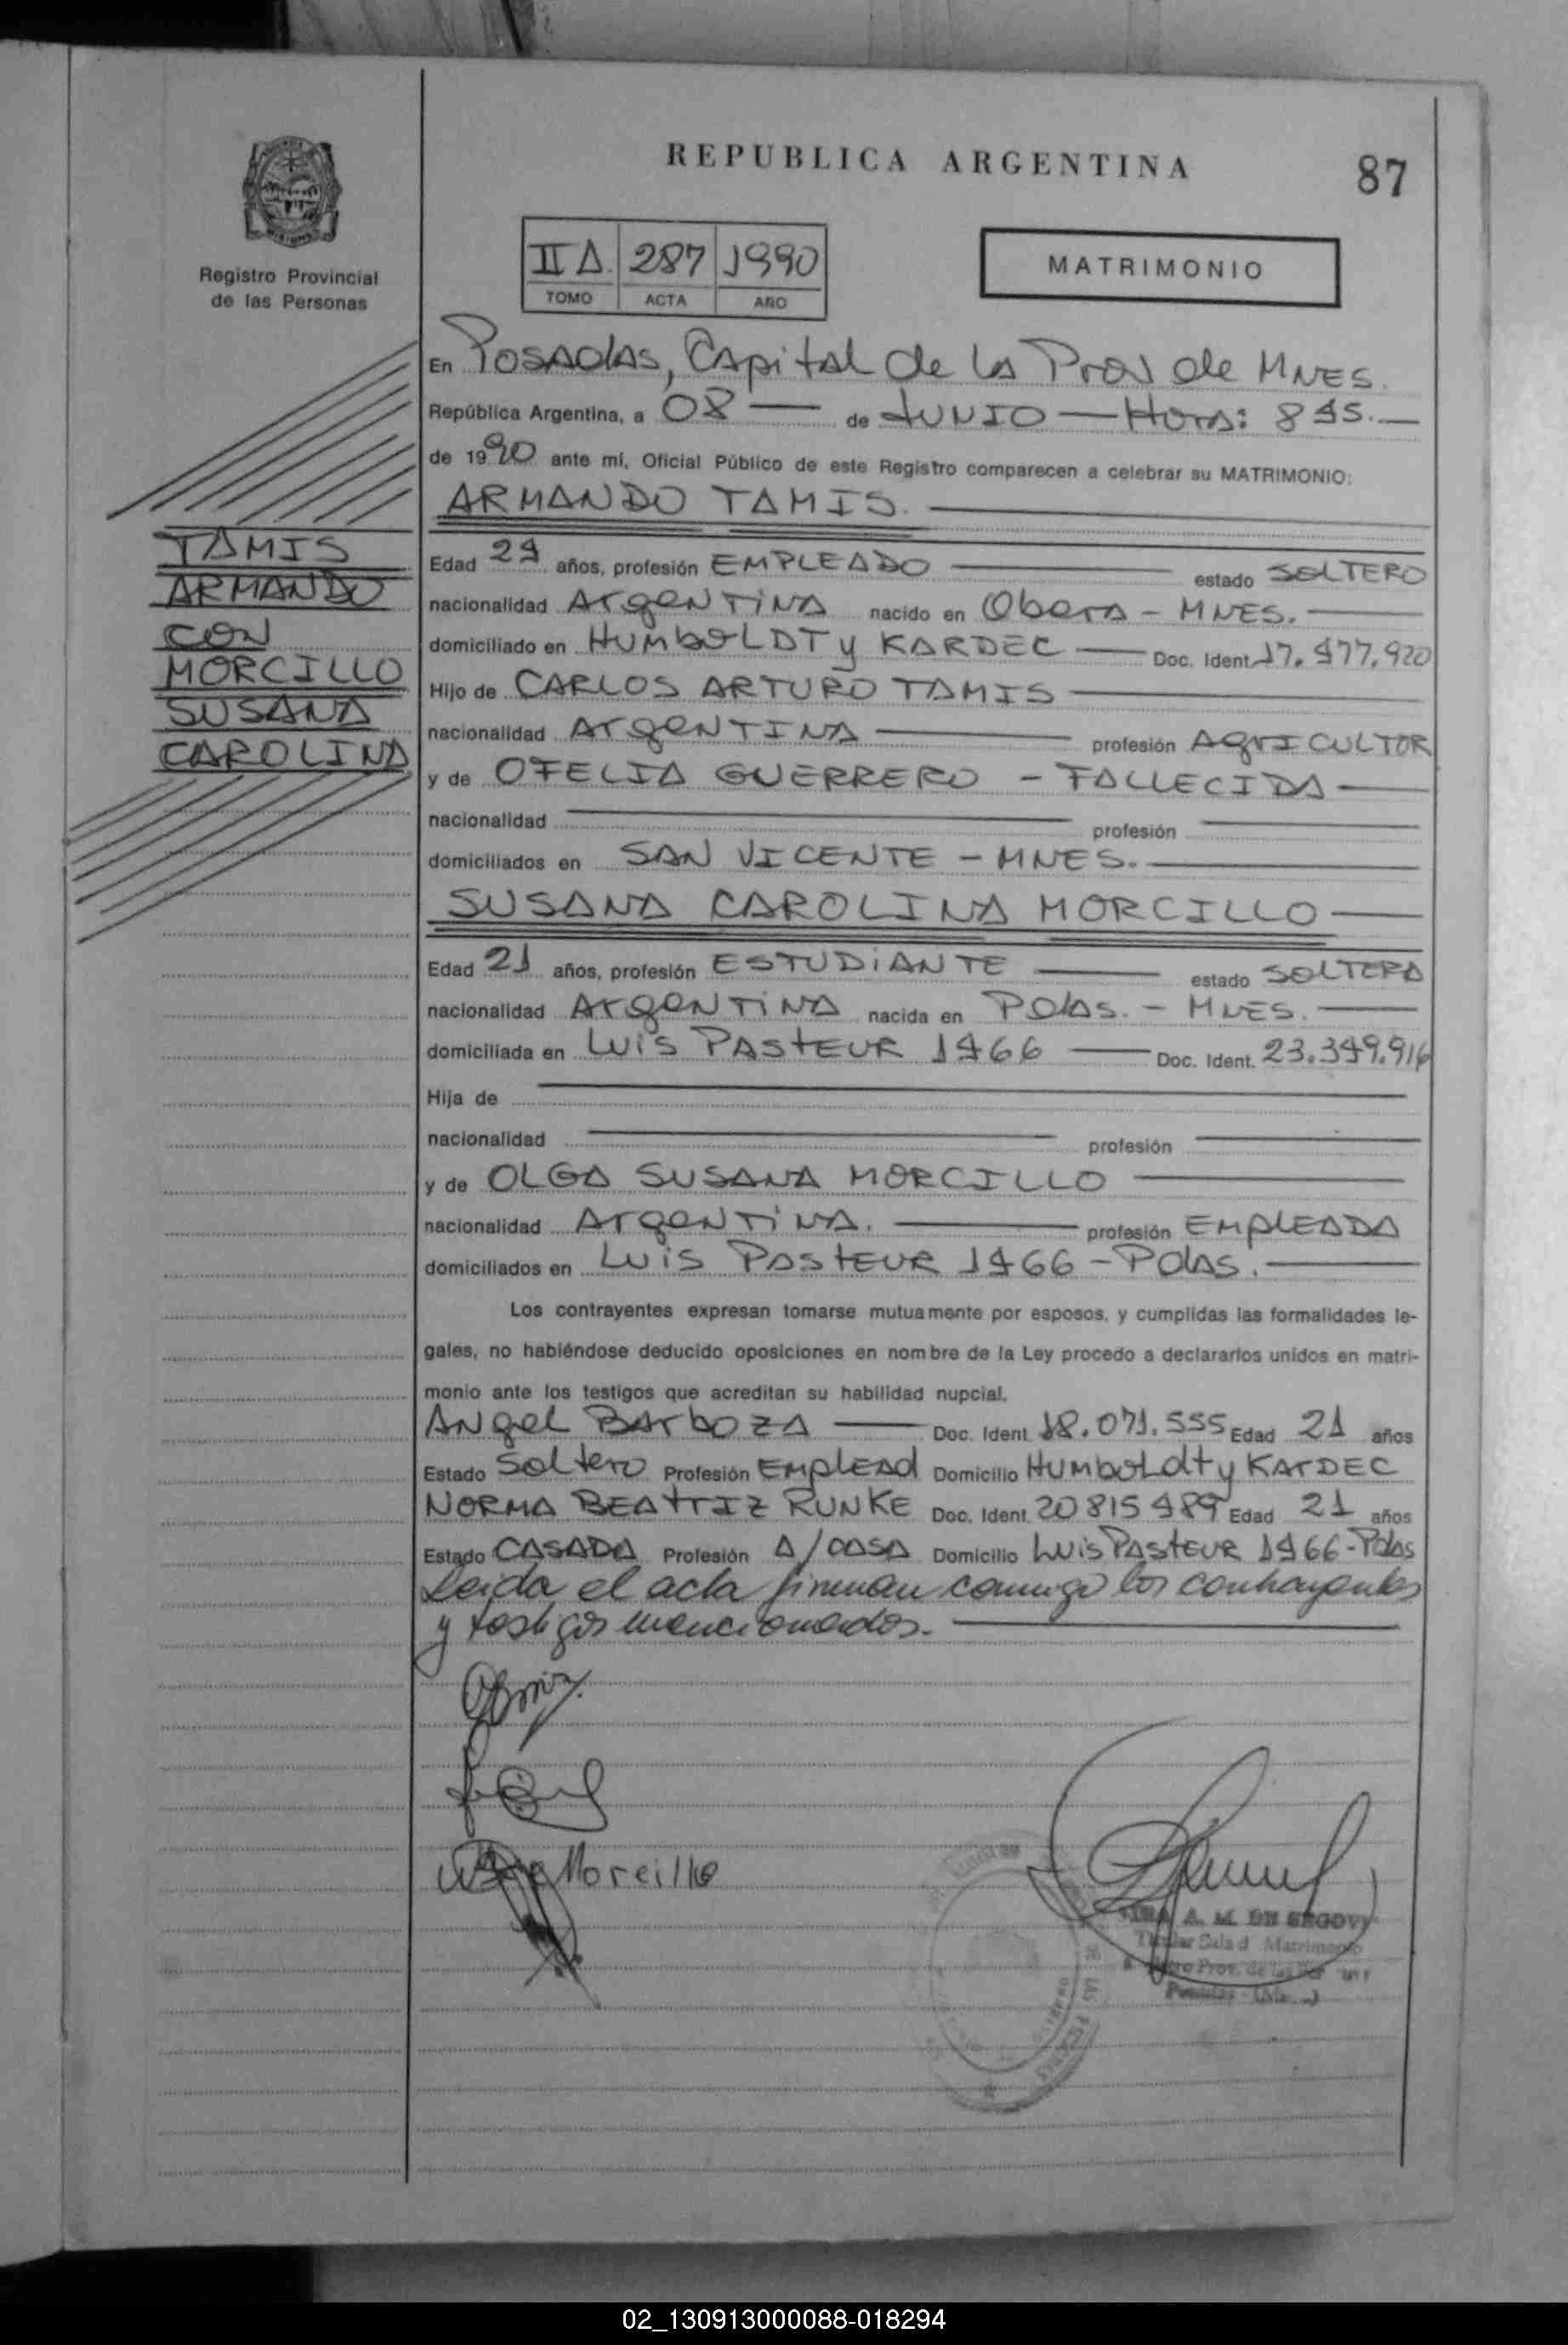 REPUBLICA ARGENTINA
87
Registro Provincial
de las Personas
II A. 287 1990
TOMO ACTA AÑO
MATRIMONIO
En Posadas, Capital de la Prov de MNES.
República Argentina, a 08 de JUNIO Hora: 845.
de 1990 ante mí, Oficial Público de este Registro comparecen a celebrar su MATRIMONIO:
ARMANDO TAMIS.
TAMIS
ARMANDO
CON
MORCILLO
SUSANA
CAROLINA
Edad 24 años, profesión EMPLEADO estado SOLTERO
nacionalidad ArgenTINA nacido en Obera - MNES.
domiciliado en HUMboLDT y KARDEC Doc. Ident. 17.477.920
Hijo de CARLOS ARTURO TAMIS
nacionalidad ArgenTINA profesión AgrICULTOR
y de OFELIA GUERRERO - FALLECIDA
nacionalidad profesión
domiciliados en SAN VICENTE - MNES.
SUSANA CAROLINA MORCILLO
Edad 21 años, profesión ESTUDiANTE estado SOLTERA
nacionalidad ArgenTiNA nacida en Pdas. - MNES.
domiciliada en LUiS PASTEUR 1466 Doc. Ident. 23.349.916
Hija de
nacionalidad profesión
y de OLGA SUSANA MORCILLO
nacionalidad ArgenTiNA. profesión EMpLEADA
domiciliados en LUiS PASTEUR 1466 - Pdas.
Los contrayentes expresan tomarse mutuamente por esposos, y cumplidas las formalidades le-
gales, no habiéndose deducido oposiciones en nombre de la Ley procedo a declararlos unidos en matri-
monio ante los testigos que acreditan su habilidad nupcial.
ANgel BArboZA Doc. Ident. 18.071.555 Edad 21 años
Estado Soltero Profesión EMplEAd Domicilio HUMboLdt y KArDEC
NORMA BEAtrIZ RUNKE Doc. Ident. 20815489 Edad 21 años
Estado CASADA Profesión A/CASA Domicilio LUiS PASTEUR 1466-Pdas
Leida el acta firman conmigo los contrayentes
y testigos mencionados.
Morcillo
A. M. DE SEGOVI
Matrimonio
Prov. de las
02_130913000088-018294